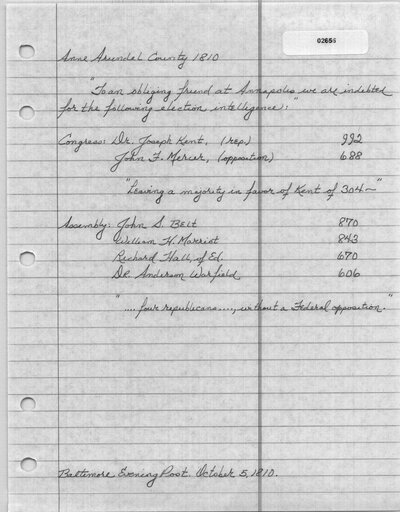 02656
Anne Arundel County 1810
"To an obliging friend at Annapolis we are indebted
for the following election intelligence:"
Congress: Dr. Joseph Kent, (rep.) 992
John F. Mercer, (opposition) 688
"Leaving a majority in favor of Kent of 304~"
Assembly: John S. Belt 870
William H. Marriot 843
Richard Hall, of Ed. 670
Dr. Anderson Warfield 606
"....four republicans...., without a Federal opposition."
Baltimore Evening Post. October 5, 1810.